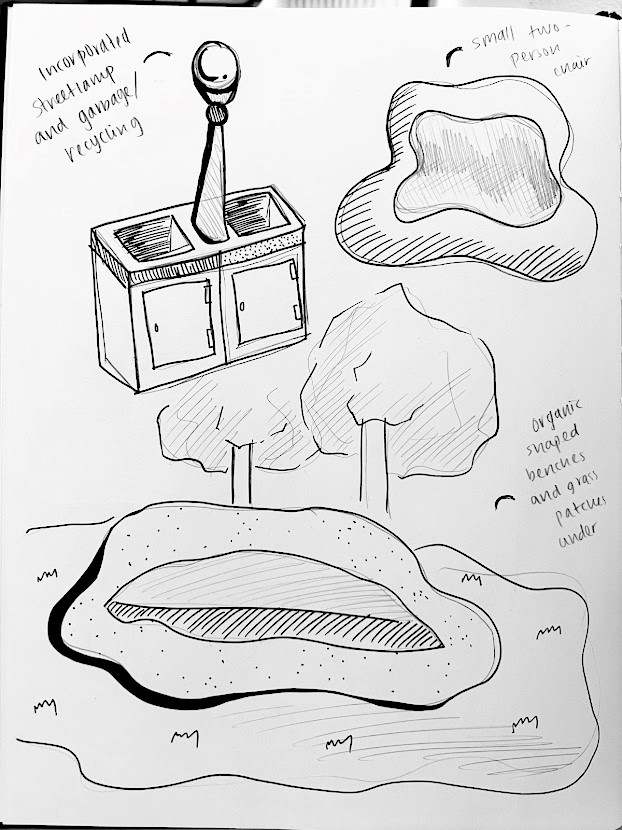 Incorporated
streetlamp
and garbage/
recycling
small two-
person
chair
organic
shaped
benches
and grass
patches
under